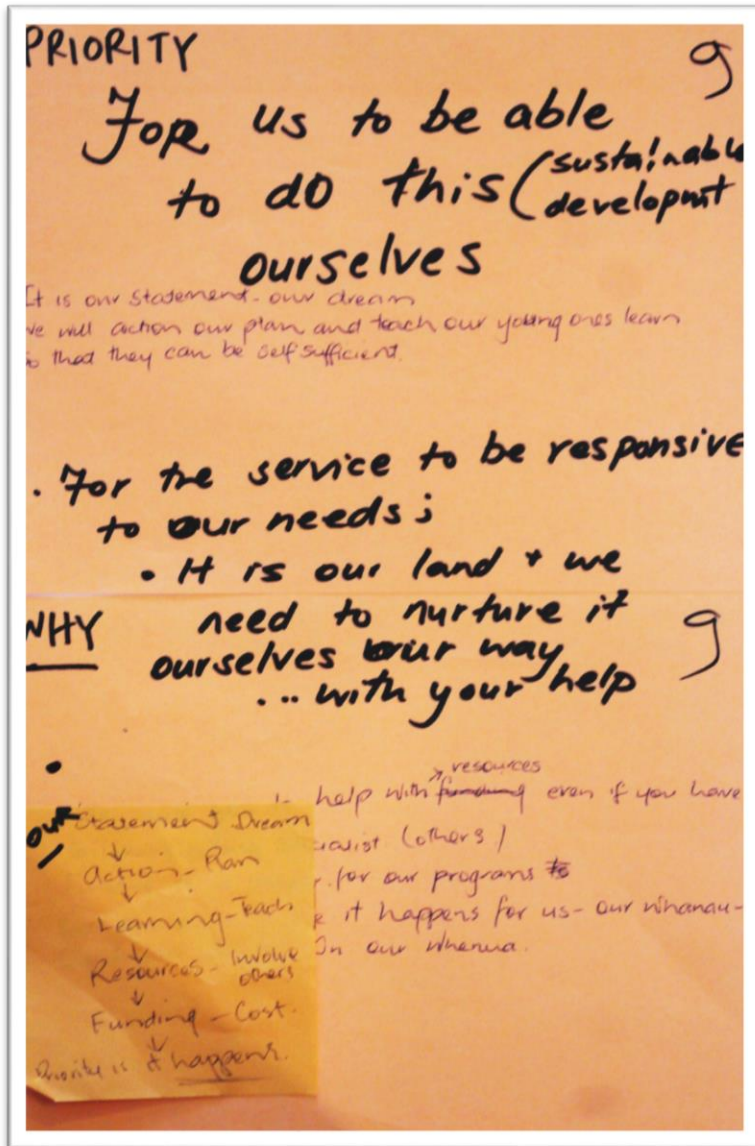 PRIORITY 9
For us to be able
to do this (sustainable
developmt
ourselves
It is our statement - our dream
we will action our plan and teach our young ones learn
so that they can be self sufficient.
. For the service to be responsive
to our needs;
• It is our land + we
WHY need to nurture it 9
ourselves our way
... with your help
resources
help with funding even if you have
(others)
for our programs to
it happens for us - our whanau -
On our whenua.
our Statement Dream
↓
Action - Plan
↓
Learning - Teach
↓
Resources - Involve
others
↓
Funding - Cost.
↓
Priority is it happens.